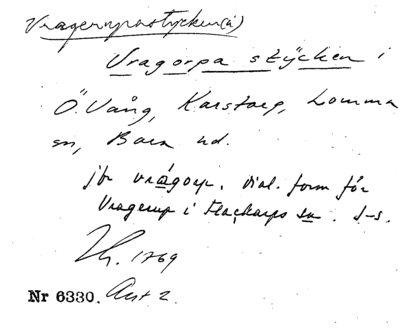 Vragerupastycken(a)
Vragorpa stÿcken i
Ö. Vång, Karstorp, Lomma
sn, Bara hd.
jfr vrågorp, dial. form för
Vragerup i Flackarps sn. S-s.
1769
Nr 6330. Avs 2.